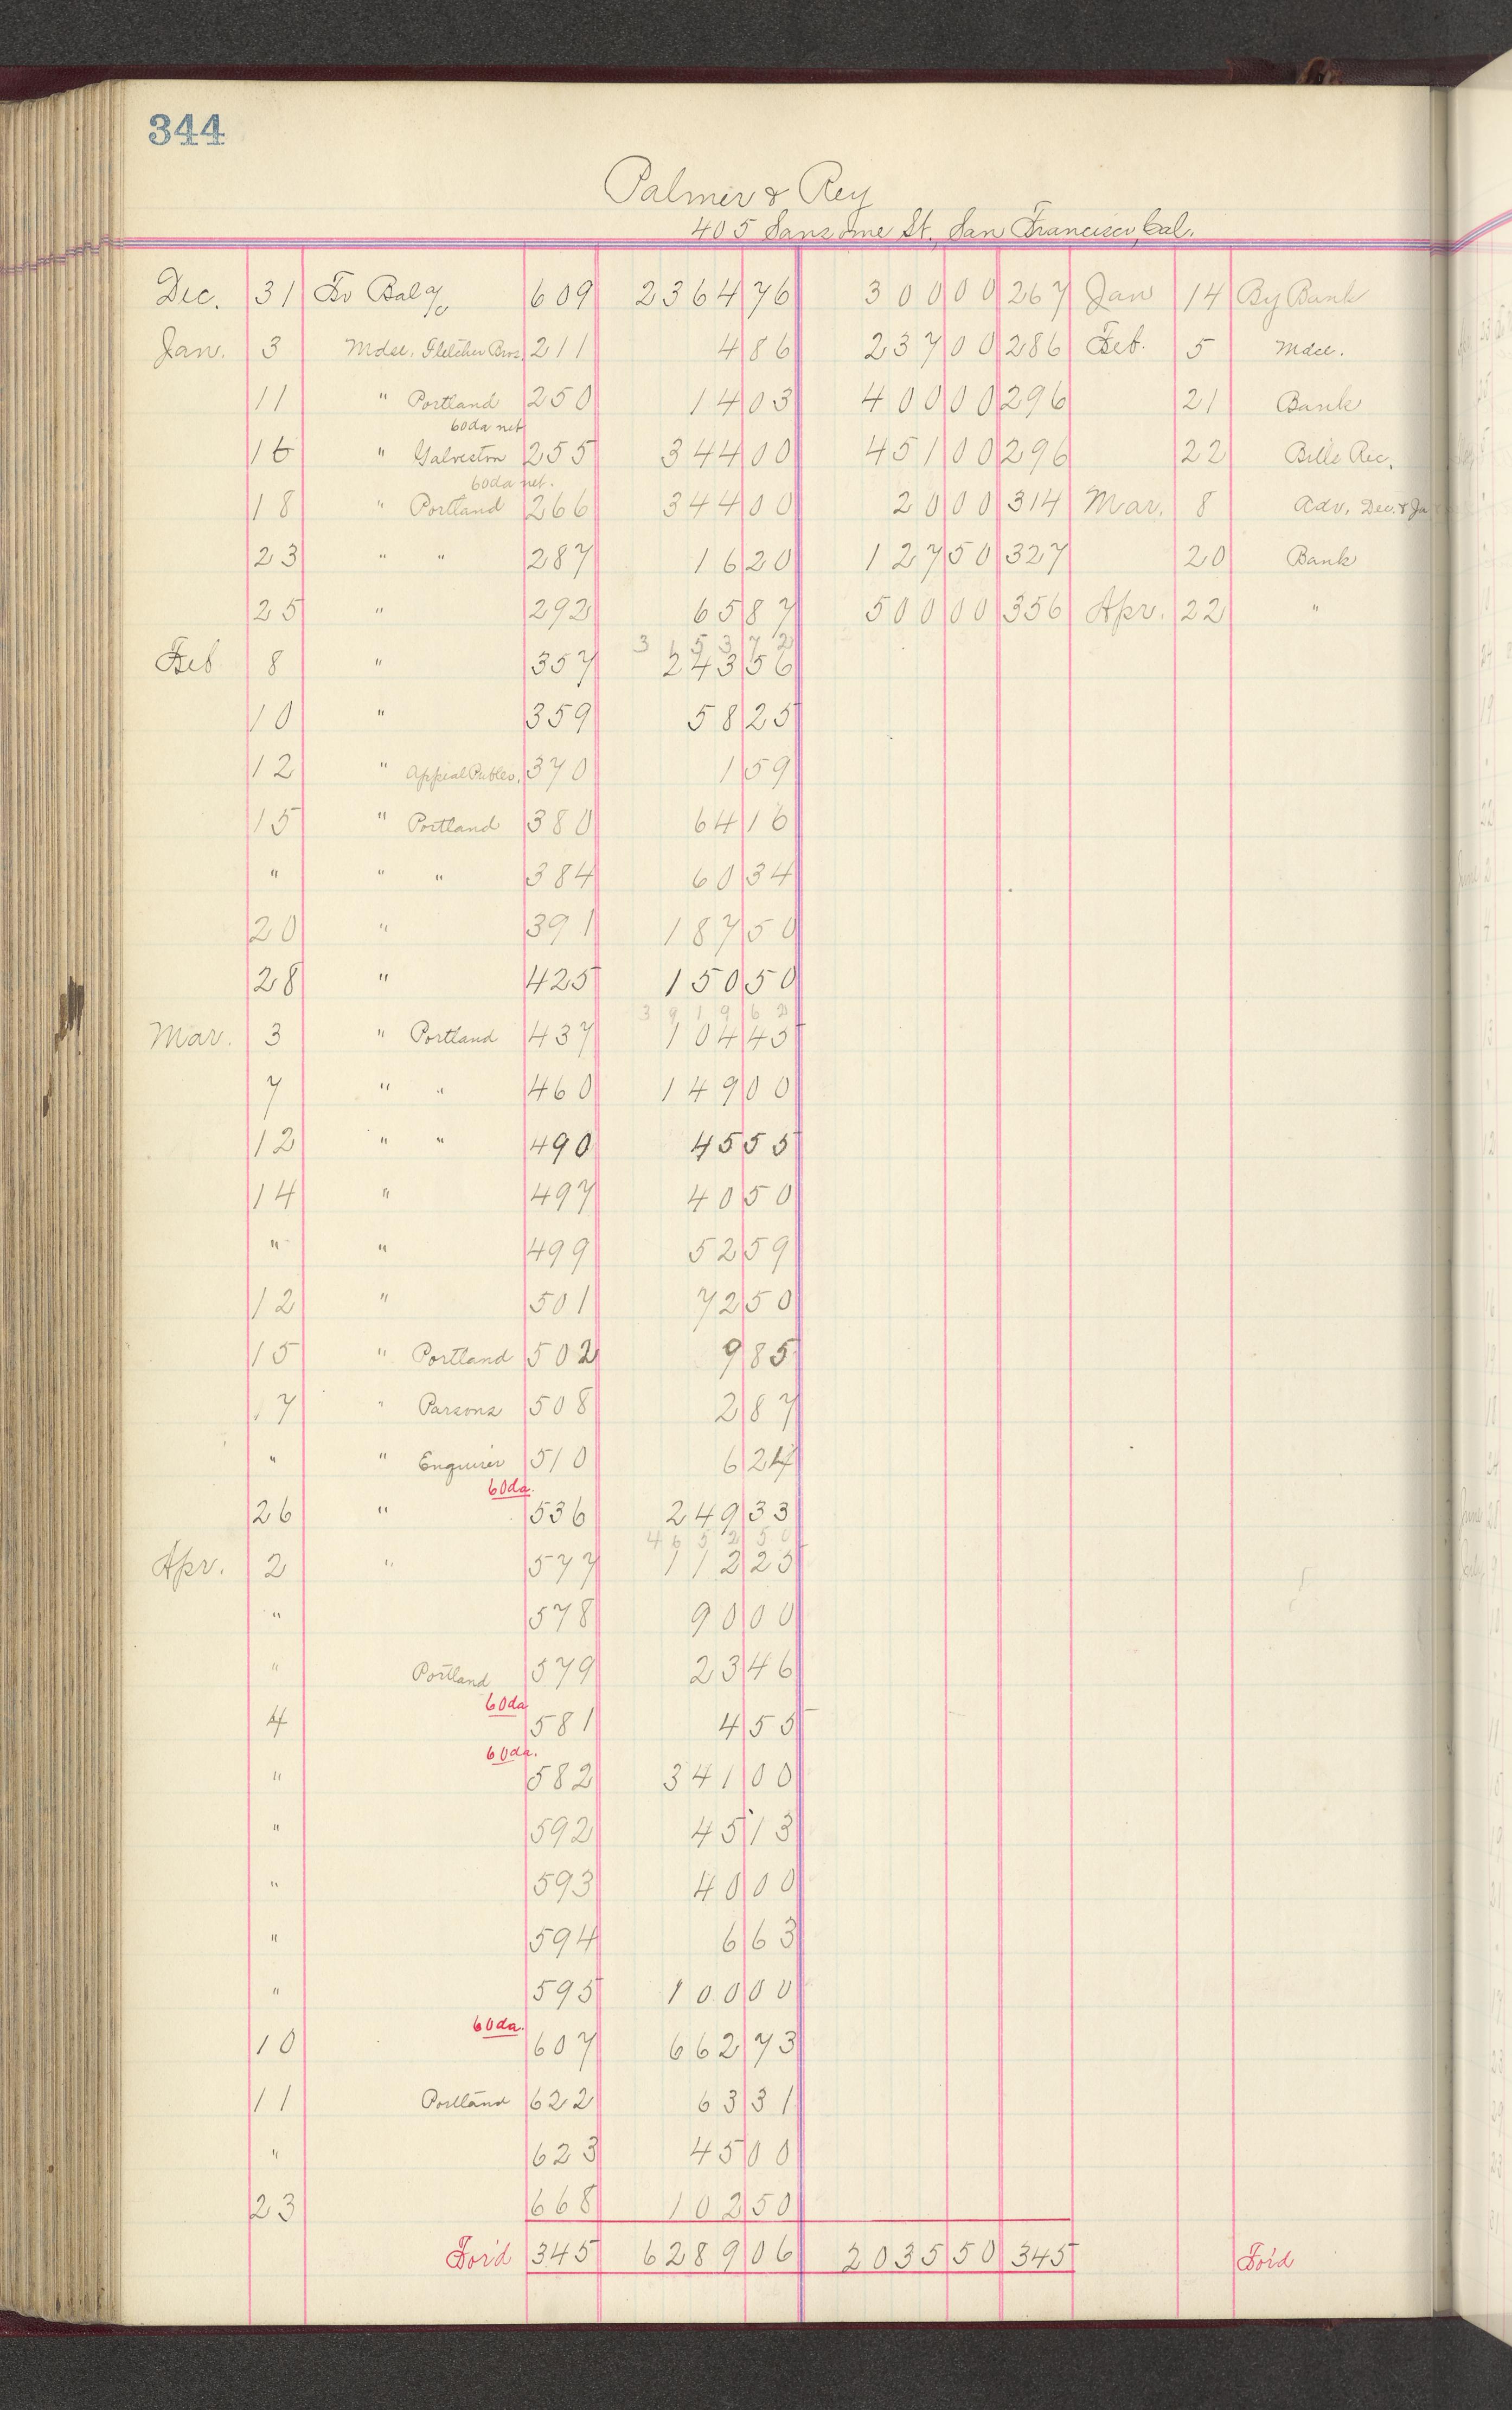 344
Palmer & Rey
405 Sansome St. San Francisco, Cal.
Dec. 31 To Bal a/c 609 2364 76 300 00 267 Jan 14 By Bank
Jan. 3 Mdse. Fletcher Bros. 211 4 86 237 00 286 Feb. 5 Mdse.
11 " Portland 250 14 03 400 00 296 21 Bank
60da net
16 " Galveston 255 344 00 451 00 296 22 Bills Rec.
60da net.
18 " Portland 266 344 00 20 00 314 Mar. 8 Adv. Dec. & Ja
23 " " 287 16 20 127 50 327 20 Bank
25 " 292 65 87 500 00 356 Apr. 22 "
3 1 5 3 7 2
Feb 8 " 357 243 56
10 " 359 58 25
12 " Appeal Publes. 370 1 59
15 " Portland 380 64 16
" " " 384 60 34
20 " 391 187 50
28 " 425 150 50
3 9 1 9 6 2
Mar. 3 " Portland 437 104 45
7 " " 460 149 00
12 " " 490 45 55
14 " 497 40 50
" " 499 52 59
12 " 501 72 50
15 " Portland 502 9 85
17 " Parsons 508 2 87
" " Enquirer 510 6 24
60da.
26 " 536 249 33
4 6 5 2 5 0
Apr. 2 " 577 112 25
" 578 90 00
" Portland 579 23 46
60da
4 581 4 55
60da.
" 582 341 00
" 592 45 13
" 593 40 00
" 594 6 63
" 595 100 00
60da.
10 607 662 73
11 Portland 622 63 31
" 623 45 00
23 668 102 50
For'd 345 6289 06 2035 50 345 For'd